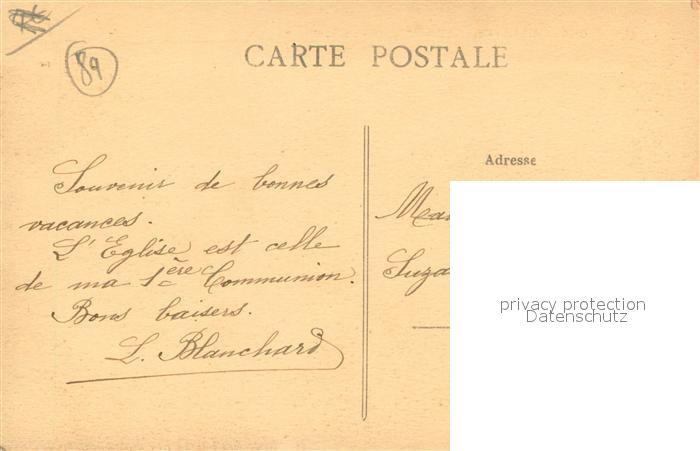 89
CARTE POSTALE
Adresse
Souvenir de bonnes
vacances.
L'Eglise est celle
de ma 1ère Communion.
Bons baisers.
L. Blanchard
privacy protection
Datenschutz